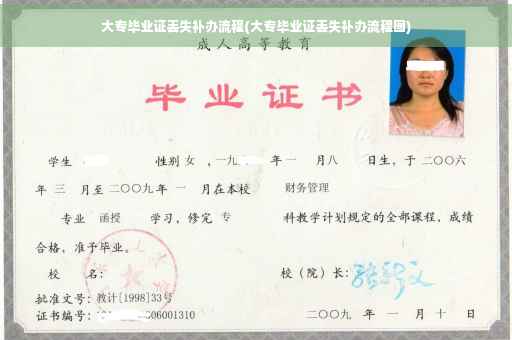 大专毕业证丢失补办流程(大专毕业证丢失补办流程图)
成人高等教育
毕业证书
学生 性别 女 ，一九 年 一 月八 日生，于 二〇〇六
年 三 月至 二〇〇九 年 一 月在本校 财务管理
专业 函授 学习，修完 专 科教学计划规定的全部课程，成绩
合格，准予毕业。
校 名： 校（院）长：
批准文号：教计[1998]33号
证书编号： 06001310 二〇〇九 年 一 月 十 日